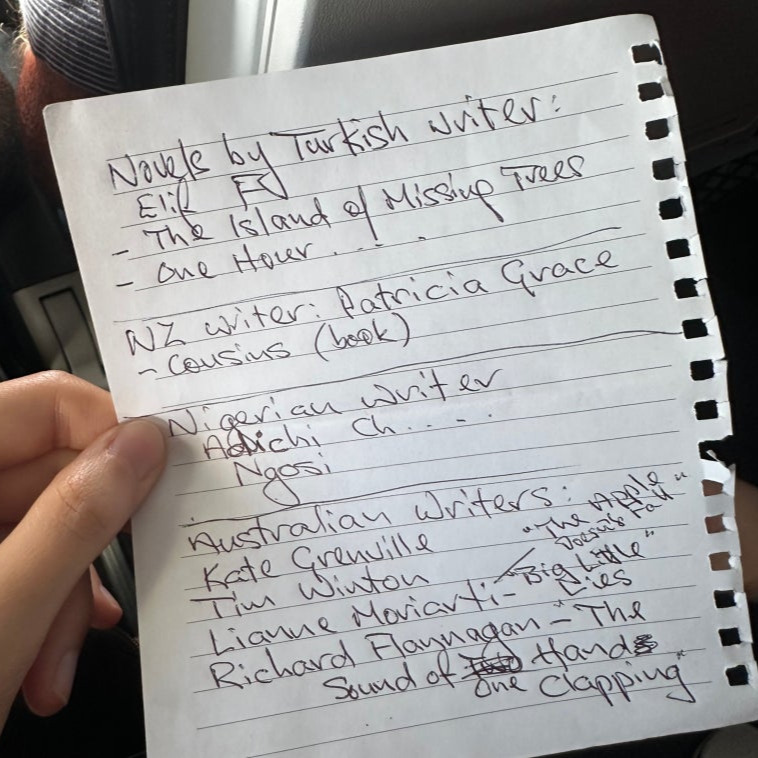 Novels by Turkish writer:
Elif
- The Island of Missing Trees
- One Hour . . . .
NZ writer: Patricia Grace
- Cousins (book)
Nigerian writer
Adichi Ch . . . .
Ngosi
Australian writers:
Kate Grenville
Tim Winton
"The Apple
Doesn't Fall"
Lianne Moriarti - "Big Little"
Lies
Richard Flannagan - "The
Sound of One Hand
Clapping"